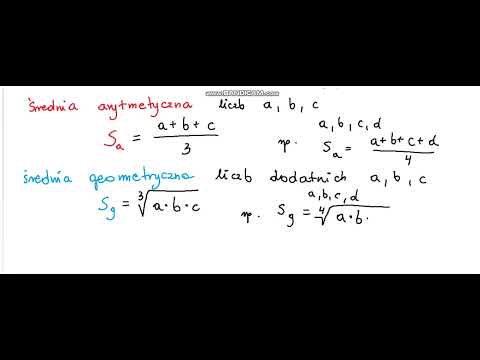 www.BANDICAM.com
średnia arytmetyczna liczb a, b, c
Sₐ = (a + b + c)/3
np. a, b, c, d
Sₐ = (a + b + c + d)/4
średnia geometryczna liczb dodatnich a, b, c
S_g = ∛(a · b · c)
np. a, b, c, d
S_g = ∜(a · b ·